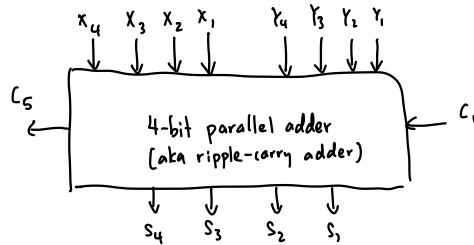 X4 X3 X2 X1 Y4 Y3 Y2 Y1
C5
4-bit parallel adder
(aka ripple-carry adder)
S4 S3 S2 S1